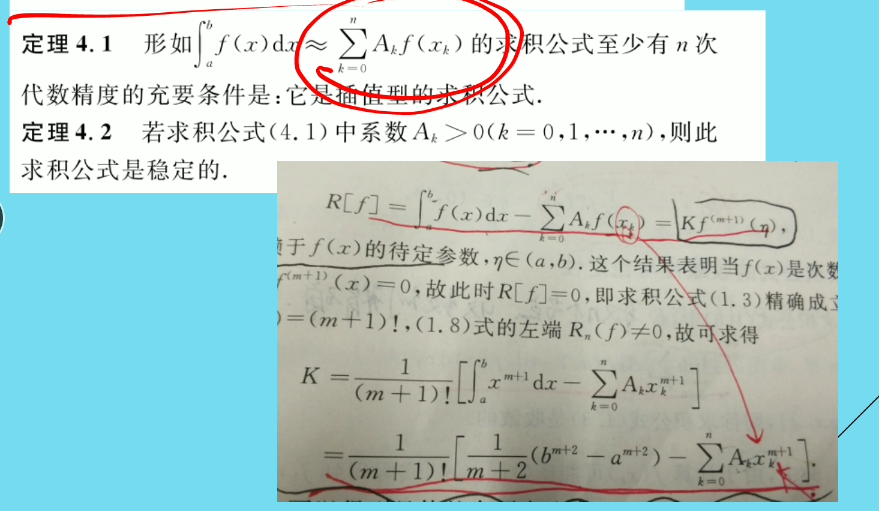 定理4.1 形如∫_a^b f(x)dx≈∑_{k=0}^n A_k f(x_k)的求积公式至少有n次
代数精度的充要条件是:它是插值型的求积公式.
定理4.2 若求积公式(4.1)中系数A_k>0(k=0,1,…,n),则此
求积公式是稳定的.
R[f]=∫_a^b f(x)dx-∑_{k=0}^n A_k f(x_k)=Kf^{(m+1)}(η),
于f(x)的待定参数,η∈(a,b).这个结果表明当f(x)是次数
f^{(m+1)}(x)=0,故此时R[f]=0,即求积公式(1.3)精确成立
)=(m+1)!,(1.8)式的左端R_n(f)≠0,故可求得
K=\frac{1}{(m+1)!}[∫_a^b x^{m+1}dx-∑_{k=0}^n A_k x_k^{m+1}]
=\frac{1}{(m+1)!}[\frac{1}{m+2}(b^{m+2}-a^{m+2})-∑_{k=0}^n A_k x_k^{m+1}].